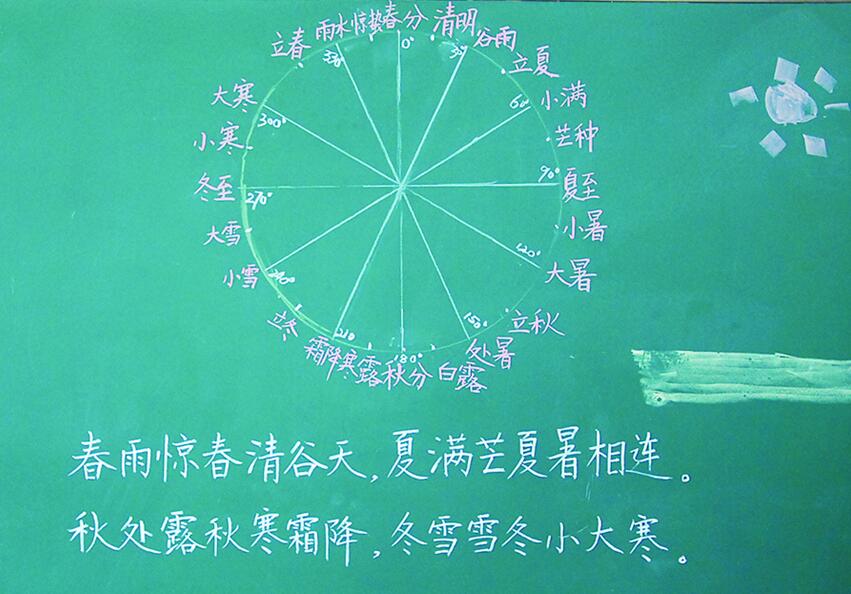 春分
清明
谷雨
立夏
小满
芒种
夏至
小暑
大暑
立秋
处暑
白露
秋分
寒露
霜降
立冬
小雪
大雪
冬至
小寒
大寒
立春
雨水
惊蛰
0°
30°
60°
90°
120°
150°
180°
210
240°
270°
300°
330
春雨惊春清谷天,夏满芒夏暑相连。
秋处露秋寒霜降,冬雪雪冬小大寒。